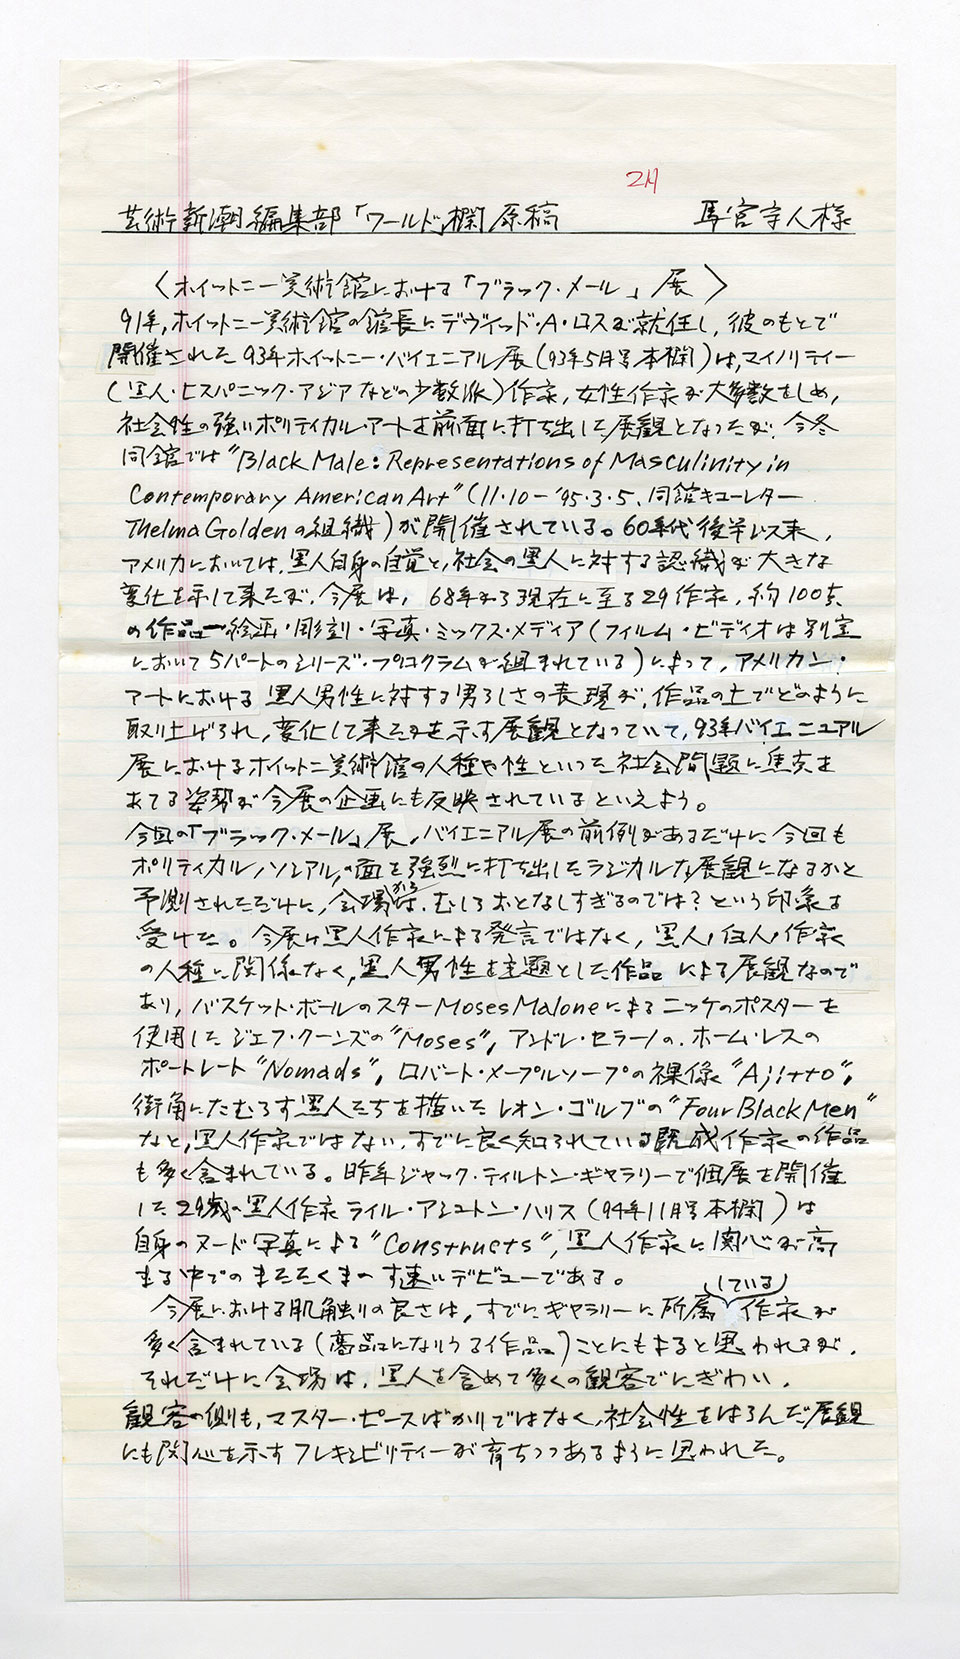 2月
芸術新潮編集部「ワールド」欄原稿 馬宮守人様
〈ホイットニー美術館における「ブラック・メール」展〉
91年,ホイットニー美術館の館長にデヴィッド・A・ロスが就任し,彼のもとで
開催された93年ホイットニー・バイエニアル展(93年5月号本欄)は,マイノリティー
(黒人・ヒスパニック・アジアなどの少数派)作家,女性作家が大多数をしめ,
社会性の強いポリティカル・アートを前面に打ち出した展観となったが,今冬
同館では"Black Male: Representations of Masculinity in
Contemporary American Art"(11・10-'95・3・5、同館キューレター
Thelma Goldenの組織)が開催されている。60年代後半以来,
アメリカにおいては,黒人自身の自覚と,社会の黒人に対する認識が大きな
変化を示して来たが,今展は,68年から現在に至る29作家,約100点
の作品―絵画・彫刻・写真・ミックス・メディア(フィルム・ビディオは別室
において5パートのシリーズ・プログラムが組まれている)によって,アメリカン・
アートにおける黒人男性に対する男らしさの表現が,作品の上でどのように
取り上げられ,変化して来たかを示す展観となっていて,93年バイエニュアル
展におけるホイットニー美術館の人種や性といった社会問題に焦点を
あてる姿勢が今展の企画にも反映されているといえよう。
今回の「ブラック・メール」展,バイエニアル展の前例があるだけに今回も
ポリティカル,ソシアル,の面を強烈に打ち出したラジカルな展観になるかと
予測されただけに,会場からは,むしろおとなしすぎるのでは?という印象を
受けた。今展は黒人作家による発言ではなく,黒人,白人,作家
の人種に関係なく,黒人男性を主題とした作品による展観なので
あり,バスケット・ボールのスターMoses Maloneによるニッケのポスターを
使用したジェフ・クーンズの"Moses",アンドレ・セラーノの,ホーム・レスの
ポートレート"Nomads",ロバート・メープルソープの裸像"Ajitto",
街角にたむろす黒人たちを描いたレオン・ゴルブの"Four Black Men"
など,黒人作家ではない,すでに良く知られている既成作家の作品
も多く含まれている。昨年ジャック・ティルトン・ギャラリーで個展を開催
した29歳の黒人作家ライル・アシュトン・ハリス(94年11月号本欄)は
自身のヌード写真による"Constructs",黒人作家に関心が高
まる中でのまたたくまのす速いデビューである。
今展における肌触りの良さは,すでにギャラリーに所属している作家が
多く含まれている(商品になりうる作品)ことにもよると思われるが,
それだけに会場は,黒人を含めて多くの観客でにぎわい,
観客の側も,マスター・ピースばかりではなく,社会性をはらんだ展観
にも関心を示すフレキシビリティーが育ちつつあるように思われた。